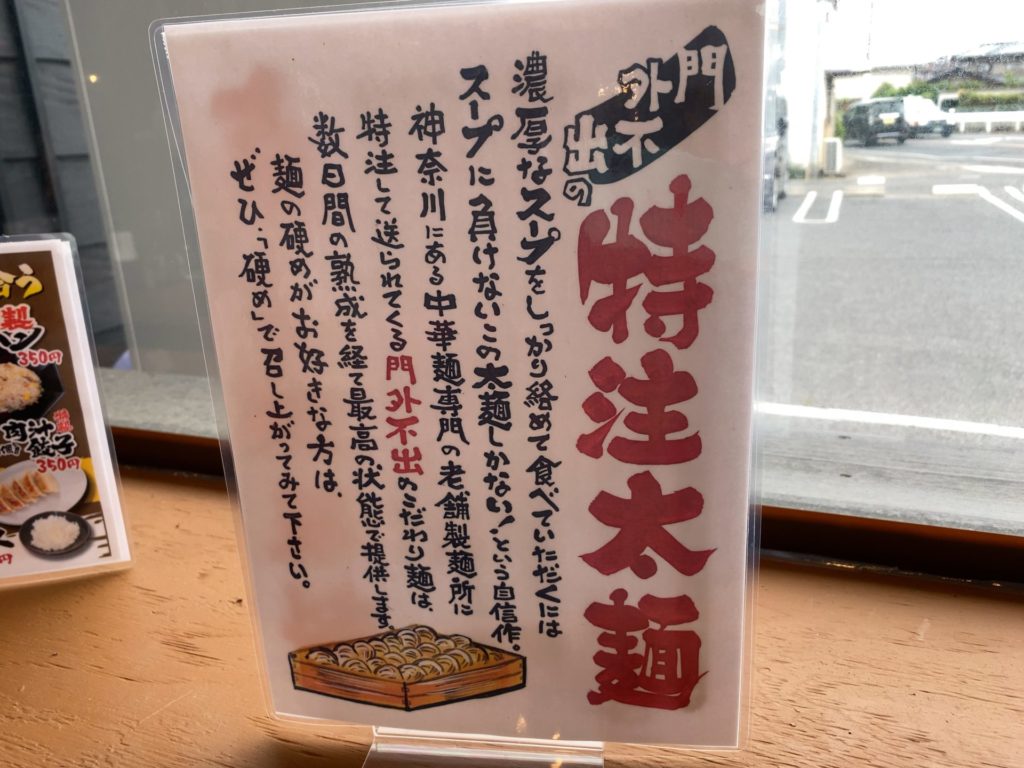 門外不出の
特注太麺
濃厚なスープをしっかり絡めて食べていただくには
スープに負けないこの太麺しかない!という自信作。
神奈川にある中華麺専門の老舗製麺所に
特注して送られてくる門外不出のこだわり麺は、
数日間の熟成を経て最高の状態で提供します。
麺の硬めがお好きな方は、
ぜひ、「硬め」で召し上がってみて下さい。
合う
製
350円
肉汁
餃子
350円
円